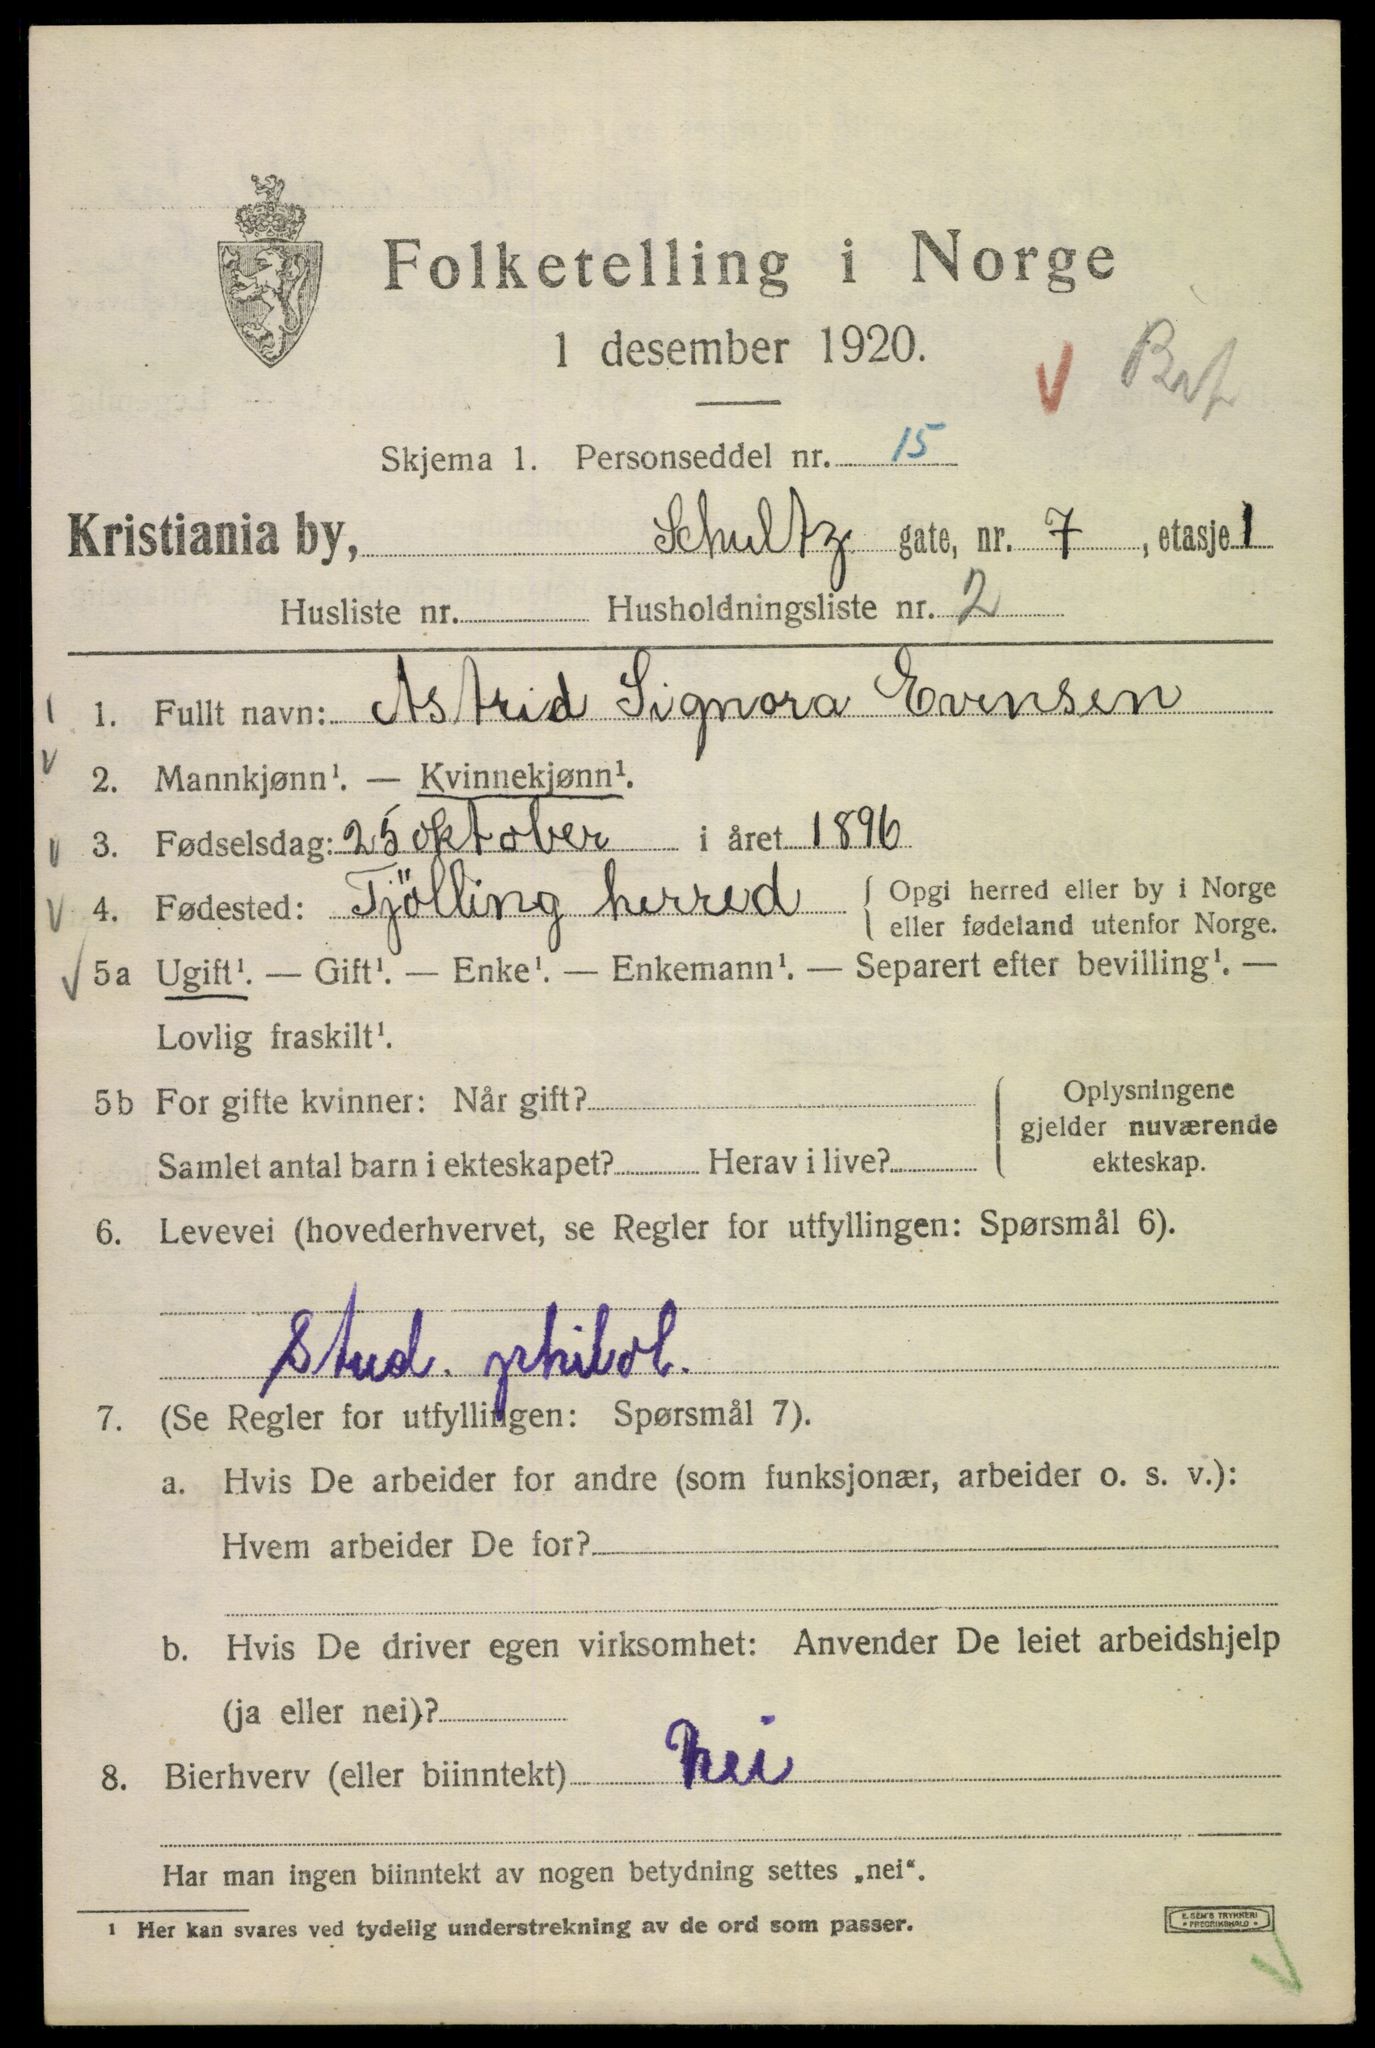 Folketelling i Norge
1 desember 1920.
Skjema 1. Personseddel nr. 15
Kristiania by, Schultz gate, nr. 7, etasje 1
Husliste nr. Husholdningsliste nr. 2
1. Fullt navn: Astrid Signora Evensen
2. Mannkjønn¹. — Kvinnekjønn¹.
3. Fødselsdag: 25 oktober i året 1896
4. Fødested: Tjölling herred { Opgi herred eller by i Norge
eller fødeland utenfor Norge.
5a Ugift¹. — Gift¹. — Enke¹. — Enkemann¹. — Separert efter bevilling¹. —
Lovlig fraskilt¹.
5b For gifte kvinner: Når gift?
Samlet antal barn i ekteskapet? Herav i live?
Oplysningene
gjelder nuværende
ekteskap.
6. Levevei (hovederhvervet, se Regler for utfyllingen: Spørsmål 6).
Stud. philol.
7. (Se Regler for utfyllingen: Spørsmål 7).
a. Hvis De arbeider for andre (som funksjonær, arbeider o. s. v.):
Hvem arbeider De for?
b. Hvis De driver egen virksomhet: Anvender De leiet arbeidshjelp
(ja eller nei)?
8. Bierhverv (eller biinntekt) Nei
Har man ingen biinntekt av nogen betydning settes „nei“.
¹ Her kan svares ved tydelig understrekning av de ord som passer.
E. SEM'S TRYKKERI
FREDRIKSHALD